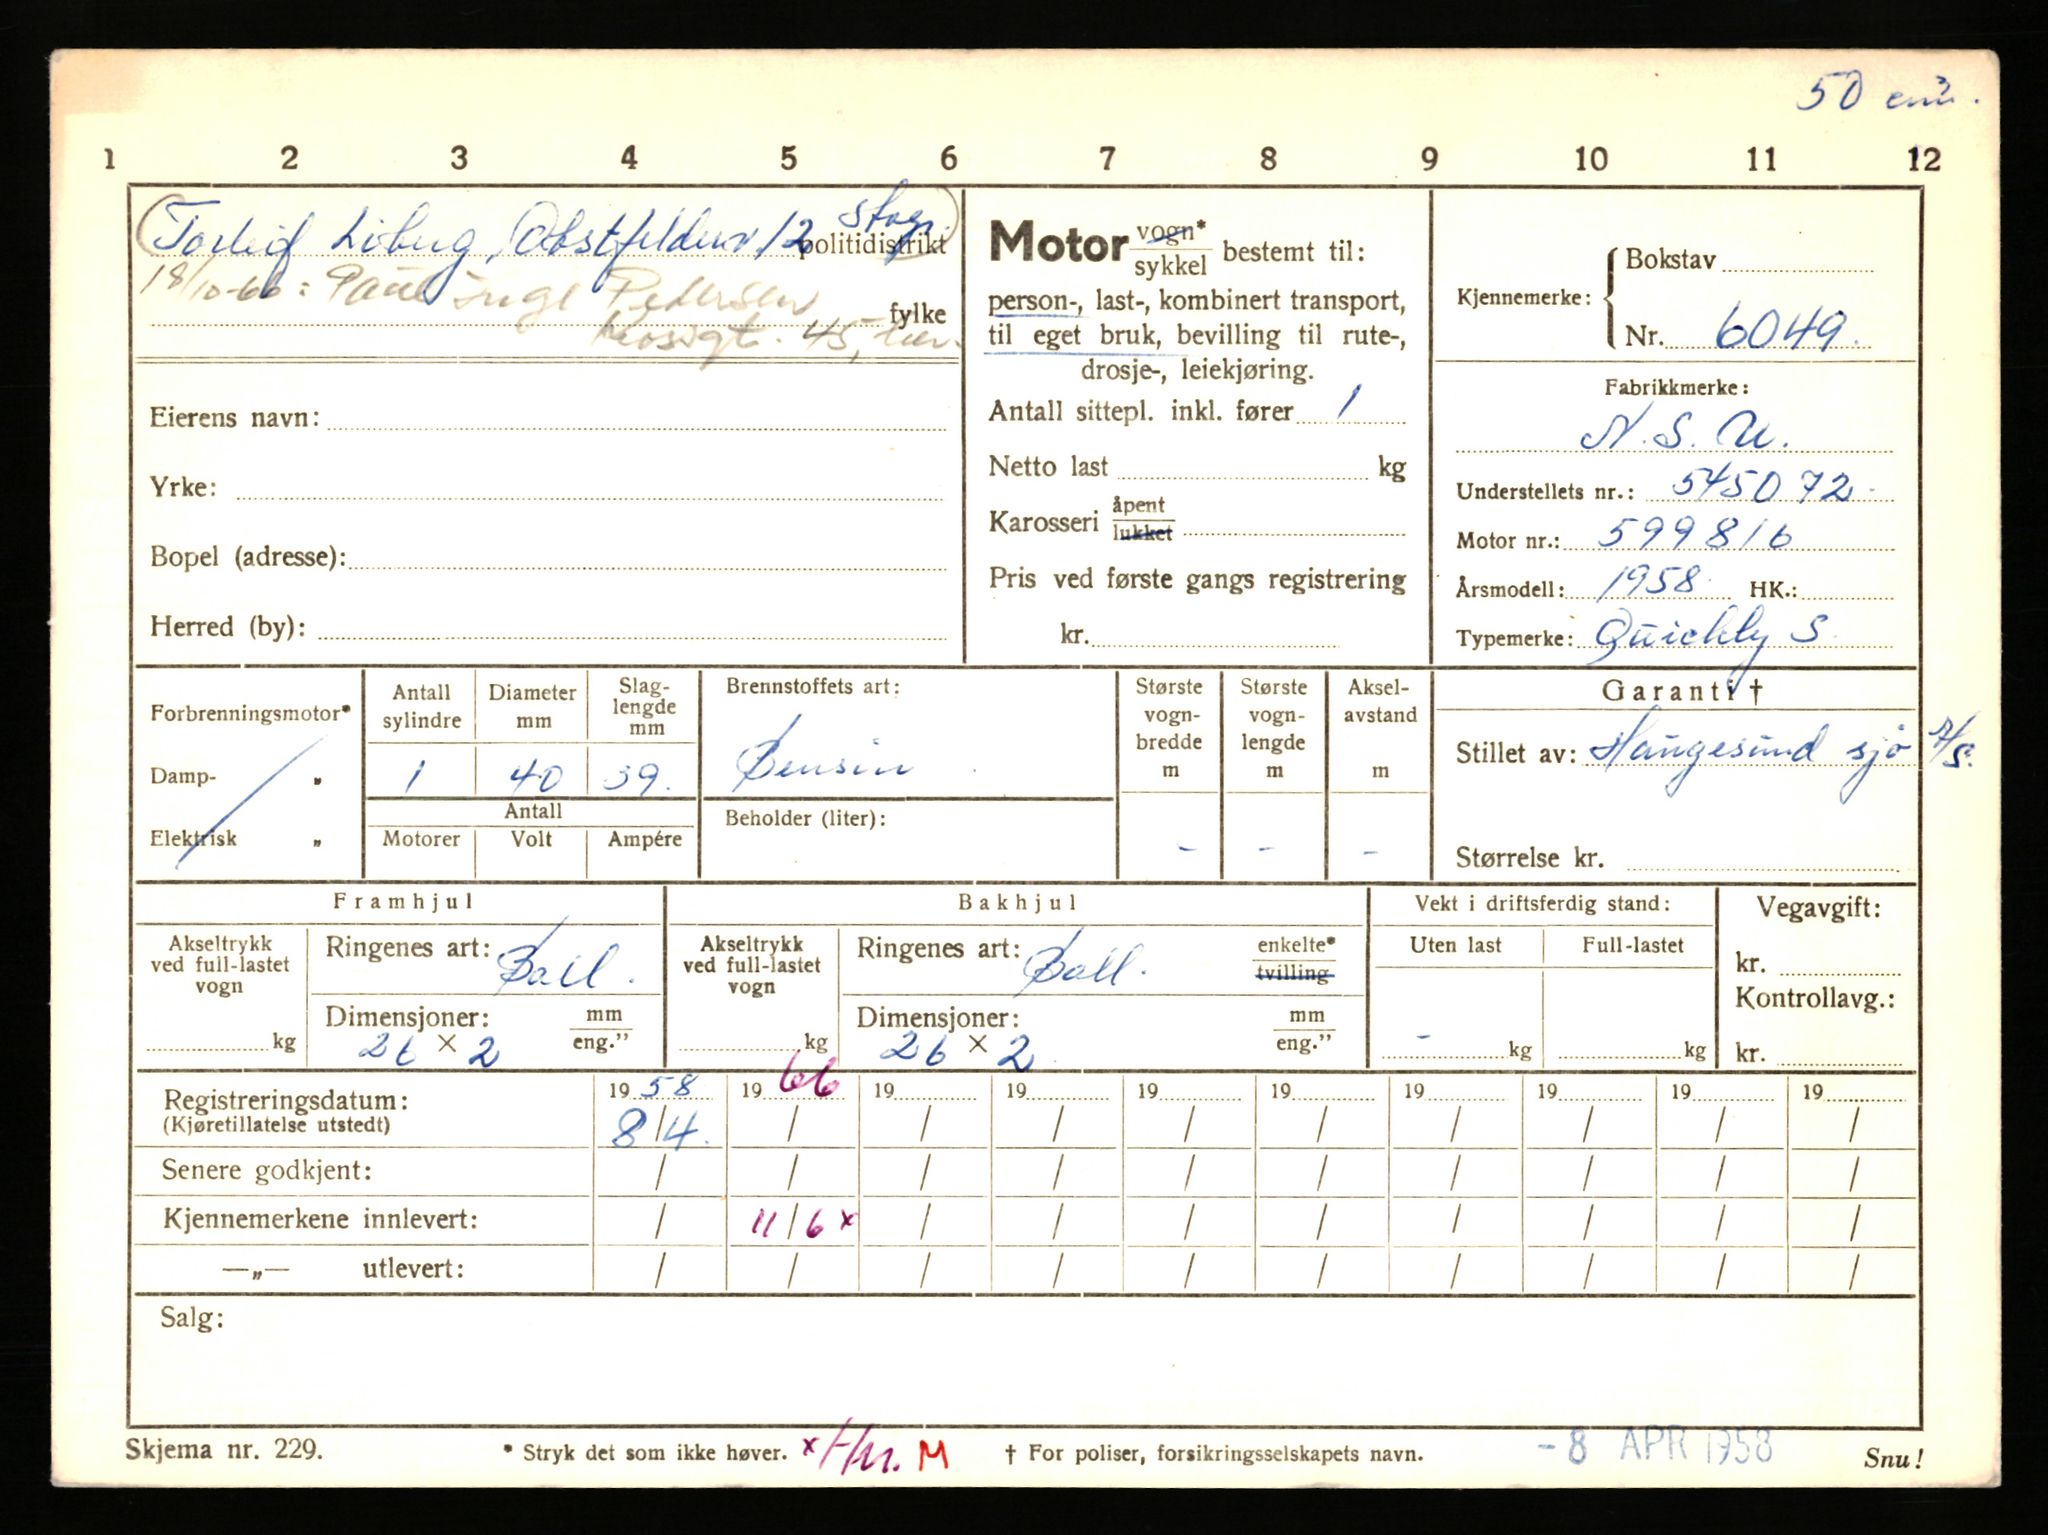 50 cm³.
1 2 3 4 5 6 7 8 9 10 11 12
Torleif Loberg, Obstfeldersv 12 Stvgr. politidistrikt
18/10-66: Paul Inge Pedersen fylke
Mosvgt. 45, her.
Eierens navn:
Yrke:
Bopel (adresse):
Herred (by):
Motor vogn* sykkel bestemt til:
person-, last-, kombinert transport,
til eget bruk, bevilling til rute-,
drosje-, leiekjøring.
Antall sittepl. inkl. fører 1
Netto last kg
Karosseri åpent lukket
Pris ved første gangs registrering
kr.
Kjennemerke: Bokstav
Nr. 6049.
Fabrikkmerke:
N.S.U.
Understellets nr.: 545072.
Motor nr.: 599816
Årsmodell: 1958 HK.:
Typemerke: Quickly S
Forbrenningsmotor*
Damp- „
Elektrisk „
Antall sylindre
1
Diameter mm
40
Slag-
lengde
mm
39.
Antall
Motorer Volt Ampére
Brennstoffets art:
Bensin
Beholder (liter):
Største
vogn-
bredde
m
-
Største
vogn-
lengde
m
-
Aksel-
avstand
m
-
Garanti †
Stillet av: Haugesund sjø A/S.
Størrelse kr.
Framhjul
Akseltrykk
ved full-lastet
vogn
kg
Ringenes art: Ball.
Dimensjoner: mm
26 × 2 eng.”
Bakhjul
Akseltrykk
ved full-lastet
vogn
kg
Ringenes art: Ball. enkelte* tvilling
Dimensjoner: mm
26 × 2 eng.”
Vekt i driftsferdig stand:
Uten last Full-lastet
- kg kg
Vegavgift:
kr.
Kontrollavg.:
kr.
Registreringsdatum: 19 58 19 66 19 19 19 19 19 19 19 19
(Kjøretillatelse utstedt) 8/4. / / / / / / / / /
Senere godkjent: / / / / / / / / / /
Kjennemerkene innlevert: / 11/6 x / / / / / / / /
—„— utlevert: / / / / / / / / / /
Salg:
Skjema nr. 229. * Stryk det som ikke høver. M † For poliser, forsikringsselskapets navn. -8 APR 1958 Snu!